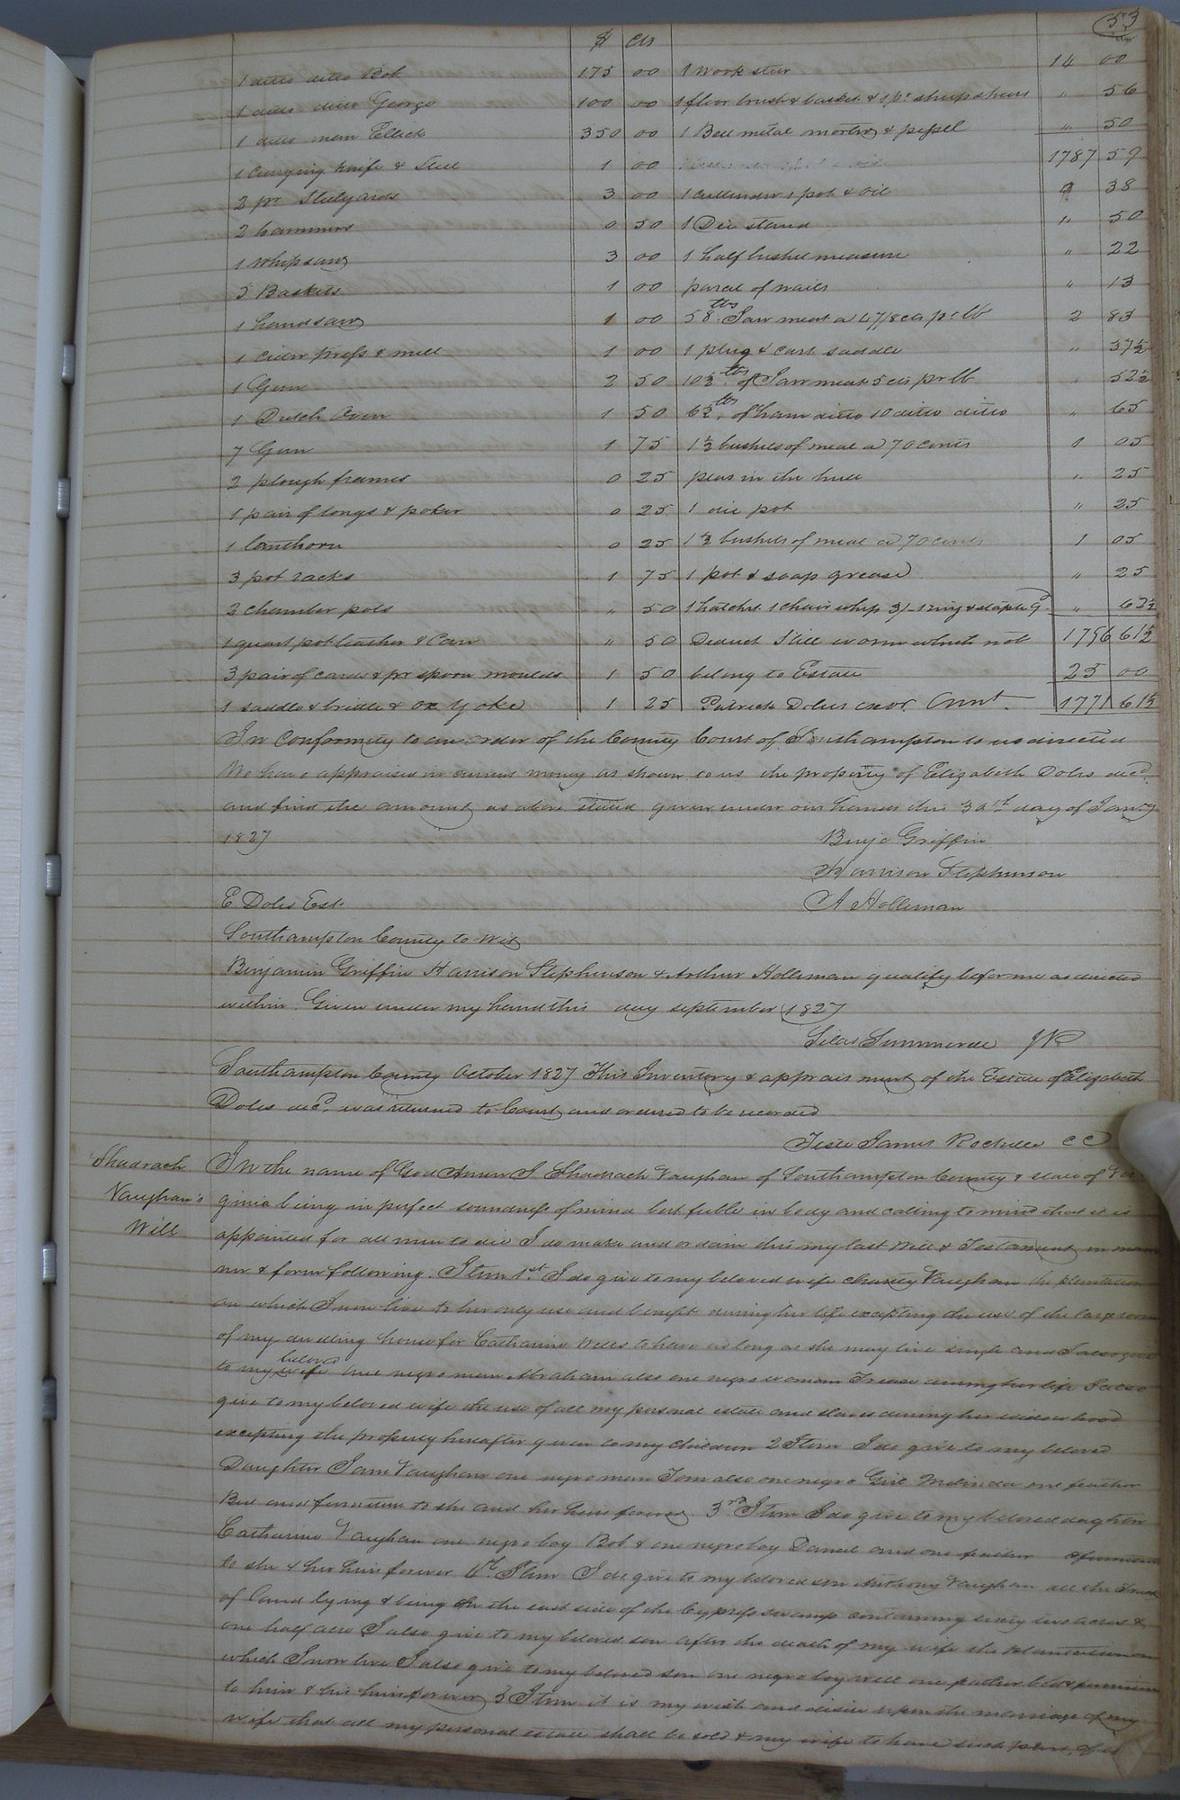 53
$ | cts
1 ditto ditto Bob 175 00 | 1 Work steer 14 00
1 ditto ditto George 100 00 | 1 floor brush & basket & 1 pr sheep shears " 56
1 ditto man Elleck 350 00 | 1 Bell metal mortar & pessel " 50
1 Currying knife & Steel 1 00 | 1787 59
2 pr Stilyards 3 00 | 1 cullender 1 pot & oil 38
2 hammers 0 50 | 1 stand " 50
1 Whipsaw 3 00 | 1 half bushel measure " 22
5 Baskets 1 00 | parcel of nails " 13
1 handsaw 1 00 | 58 lbs Jaw meat a 4 7/8 cts pr lb 2 83
1 cider press & mill 1 00 | 1 plug & cart saddle " 37½
1 Gun 2 50 | 10½ lbs of Jaw meat 5 cts pr lb 52½
1 Dutch Oven 1 50 | 6½ lbs of ham ditto 10 ditto ditto " 65
7 Gum 1 75 | 1½ bushels of meal a 70 cents 1 05
2 plough frames 0 25 | peas in the hull " 25
1 pair of tongs & poker 0 25 | 1 oil pot " 25
1 lanthorn 0 25 | 1½ bushels of meal a 70 cents 1 05
3 pot racks 1 75 | 1 pot & soap grease " 25
2 chamber pots " 50 | 1 hatchet 1 chair whip 3/- 1 ring & staple 9d " 62½
1 quart pot leather & Can " 50 | Deduct Still worm which not 1796 61½
3 pair of cards & pr spoon moulds 1 50 | belong to Estate 25 00
1 saddle & bridle & ox yoke 1 25 | Patrick Doles exor. Amnt. 1771 61½
In Conformity to an order of the County Court of Southampton to us directed
We have appraised in current money as shown to us the property of Elizabeth Doles decd
and find the amount as above stated given under our hands this 30th day of Jany
1827 Benjn Griffin
Harrison Stephenson
E Doles Est. A Holleman
Southampton County to Wit
Benjamin Griffin Harrison Stephenson & Arthur Holleman qualify before me as directed
within Given under my hand this day september 1827
Silas Summerell JP
Southampton County October 1827 This Inventory & appraisment of the Estate of Elizabeth
Doles decd. was returned to Court and ordered to be recorded
Teste James Rochelle CC
Shadrach
Vaughan's
Will
In the name of God Amen I Shadrach Vaughan of Southampton County & state of Vir
ginia being in perfect soundness of mind but feble in body and calling to mind that it is
appointed for all men to die I do make and ordain this my last Will & Testament in man
ner & form following. Item 1st. I do give to my beloved wife Vaughan the plantation
on which I now live to her only use and benefit during her life excepting the use of the large room
of my dwelling house for Catharine to have as long as she may live single and I also give
to my beloved wife one negro man Abraham also one negro woman during her life I also
give to my beloved wife the use of all my personal estate and slaves during her widowhood
excepting the property hereafter given to my children 2 Item I do give to my beloved
Daughter Vaughan one negro man Tom also one negro Girl Malinda one feather
Bed and furniture to she and her heirs forever 3rd Item I do give to my beloved daughter
Catharine Vaughan one negro boy Bob & one negro boy Daniel and one feather & furniture
to she & her heirs forever 4th Item I do give to my beloved son Anthony Vaughan all the Tract
of land lying & being on the east side of the Cypress swamp containing sixty two acres &
one half acre I also give to my beloved son after the death of my wife the plantation on
which I now live I also give to my beloved son one negro boy Will one feather bed & furniture
to him & his heirs forever 5 Item it is my wish and desire upon the marriage of my
wife that all my personal estate shall be sold & my wife to have such part of it